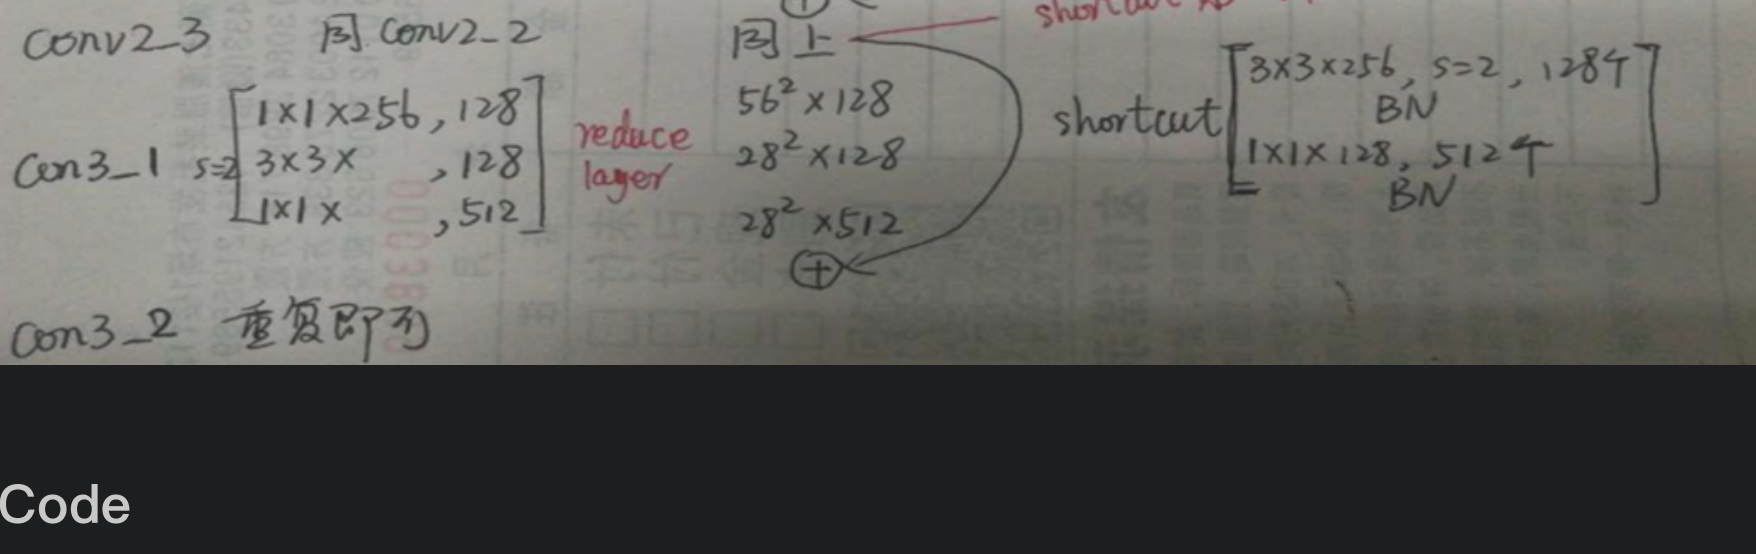 shortcut
conv2_3 同 conv2_2 同上
1×1×256, 128
Con3_1 s=2 3×3× , 128
1×1× , 512
reduce
layer
56²×128
28²×128
28²×512
⊕
shortcut
3×3×256, s=2, 128个
BN
1×1×128, 512个
BN
Con3_2 重复即可
Code